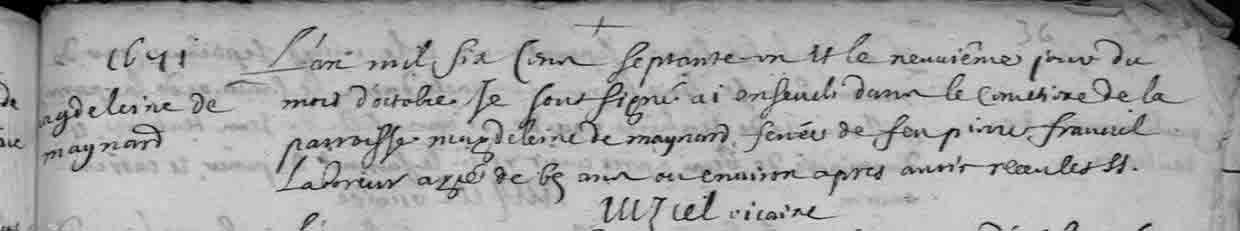 1671
Magdeleine de
maynard
L'an mil six Cens septante un et le neuviême jour du
mois d'octobre Je soussigné ai enseveli dans le Cimetiere de la
parroisse magdeleine de maynard femée de feu pierre
Laboreur agée de 65 ans ou environ apres avoir receu les SS.
vicaire